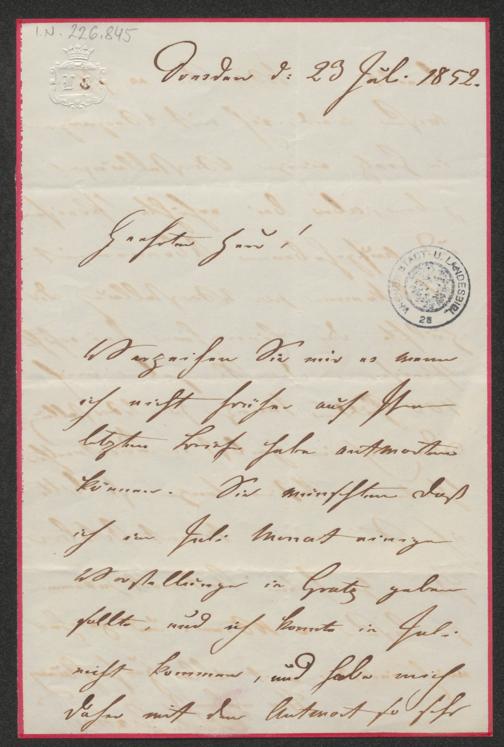 I.N. 226.845
Dresden d: 23 Juli. 1852.
Geehrter Herr!
WIENER STADT- U. LANDESBIBL.
28
Verzeihen Sie mir es wenn
ich nicht früher auf Ihren
letzten Brief habe antworten
können. Sie wünschten daß
ich im Juli Monat einige
Vorstellungen in Gratz geben
sollte, und ich konnte in Juli
nicht kommen, und habe mich
daher mit der Antwort so sehr